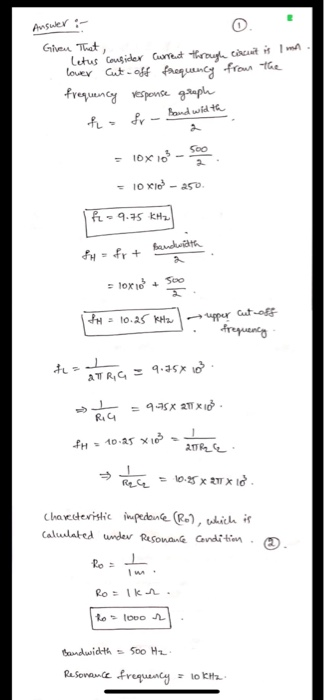 Answer :-
①.
Given That,
Letus Consider Current through circuit is 1 mA.
lower Cut-off frequency from the
frequency response graph
fL = fr - Bandwidth / 2 .
= 10×10³ - 500/2 .
= 10×10³ - 250.
fL = 9.75 kHz
fH = fr + Bandwidth / 2
= 10×10³ + 500/2
fH = 10.25 KHz → upper cut-off frequency.
fL = 1 / 2π R1C1 = 9.75× 10³ .
⇒ 1 / R1C1 = 9.75× 2π×10³ .
fH = 10.25 ×10³ = 1 / 2πR2 C2 .
⇒ 1 / R2C2 = 10.25 × 2π × 10³ .
Charecteristic impedance (Ro), which is
Calculated under Resonance Condition . ②.
Ro = 1 / 1m .
Ro = 1 k Ω .
Ro = 1000 Ω .
Bandwidth = 500 Hz .
Resonance frequency = 10 KHz .